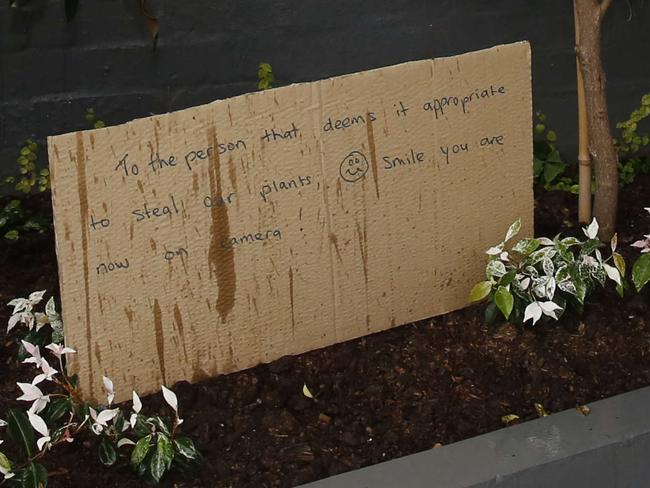 To the person that deems it appropriate
to steal our plants, Smile you are
now on camera!